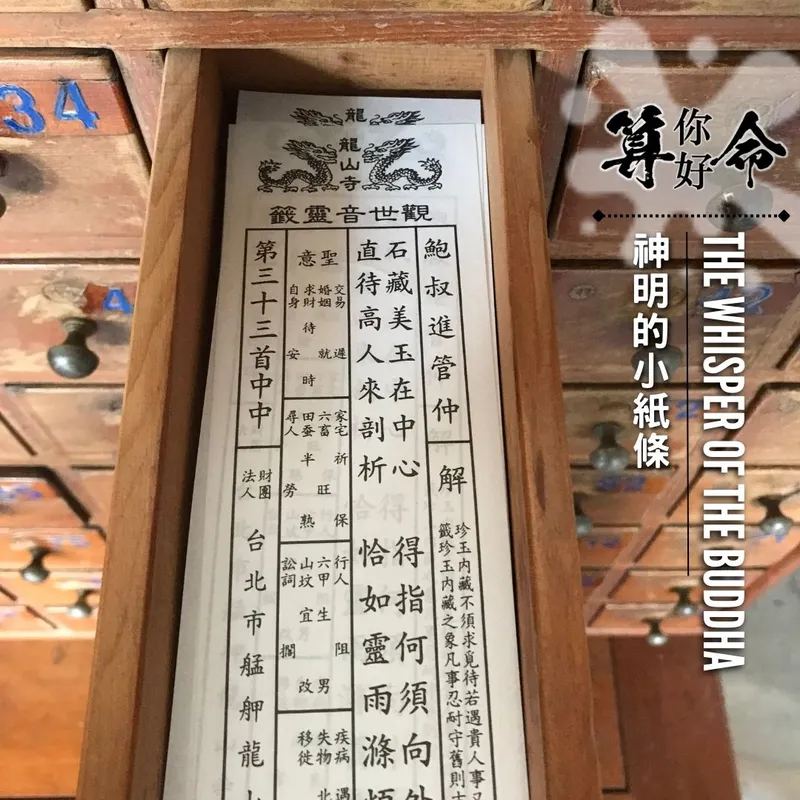 算你好命
THE WHISPER OF THE BUDDHA
神明的小紙條
34
龍
龍山寺
觀世音靈籤
鮑叔進管仲
解
珍玉內藏不須求覓待若遇貴人事
籤珍玉內藏之象凡事忍耐守舊則
石藏美玉在中心 得指何須向
直待高人來剖析 恰如靈雨滌
聖意
交易 遲
婚姻 就
求財 待時
自身 安
家宅 祈保
六畜 旺
田蚕 半熟
尋人 勞
行人 阻
六甲 生男
山坟 宜改
訟詞 擱
疾病 遇
失物 北
移徙
第三十三首中中
財團法人
台北市艋舺龍